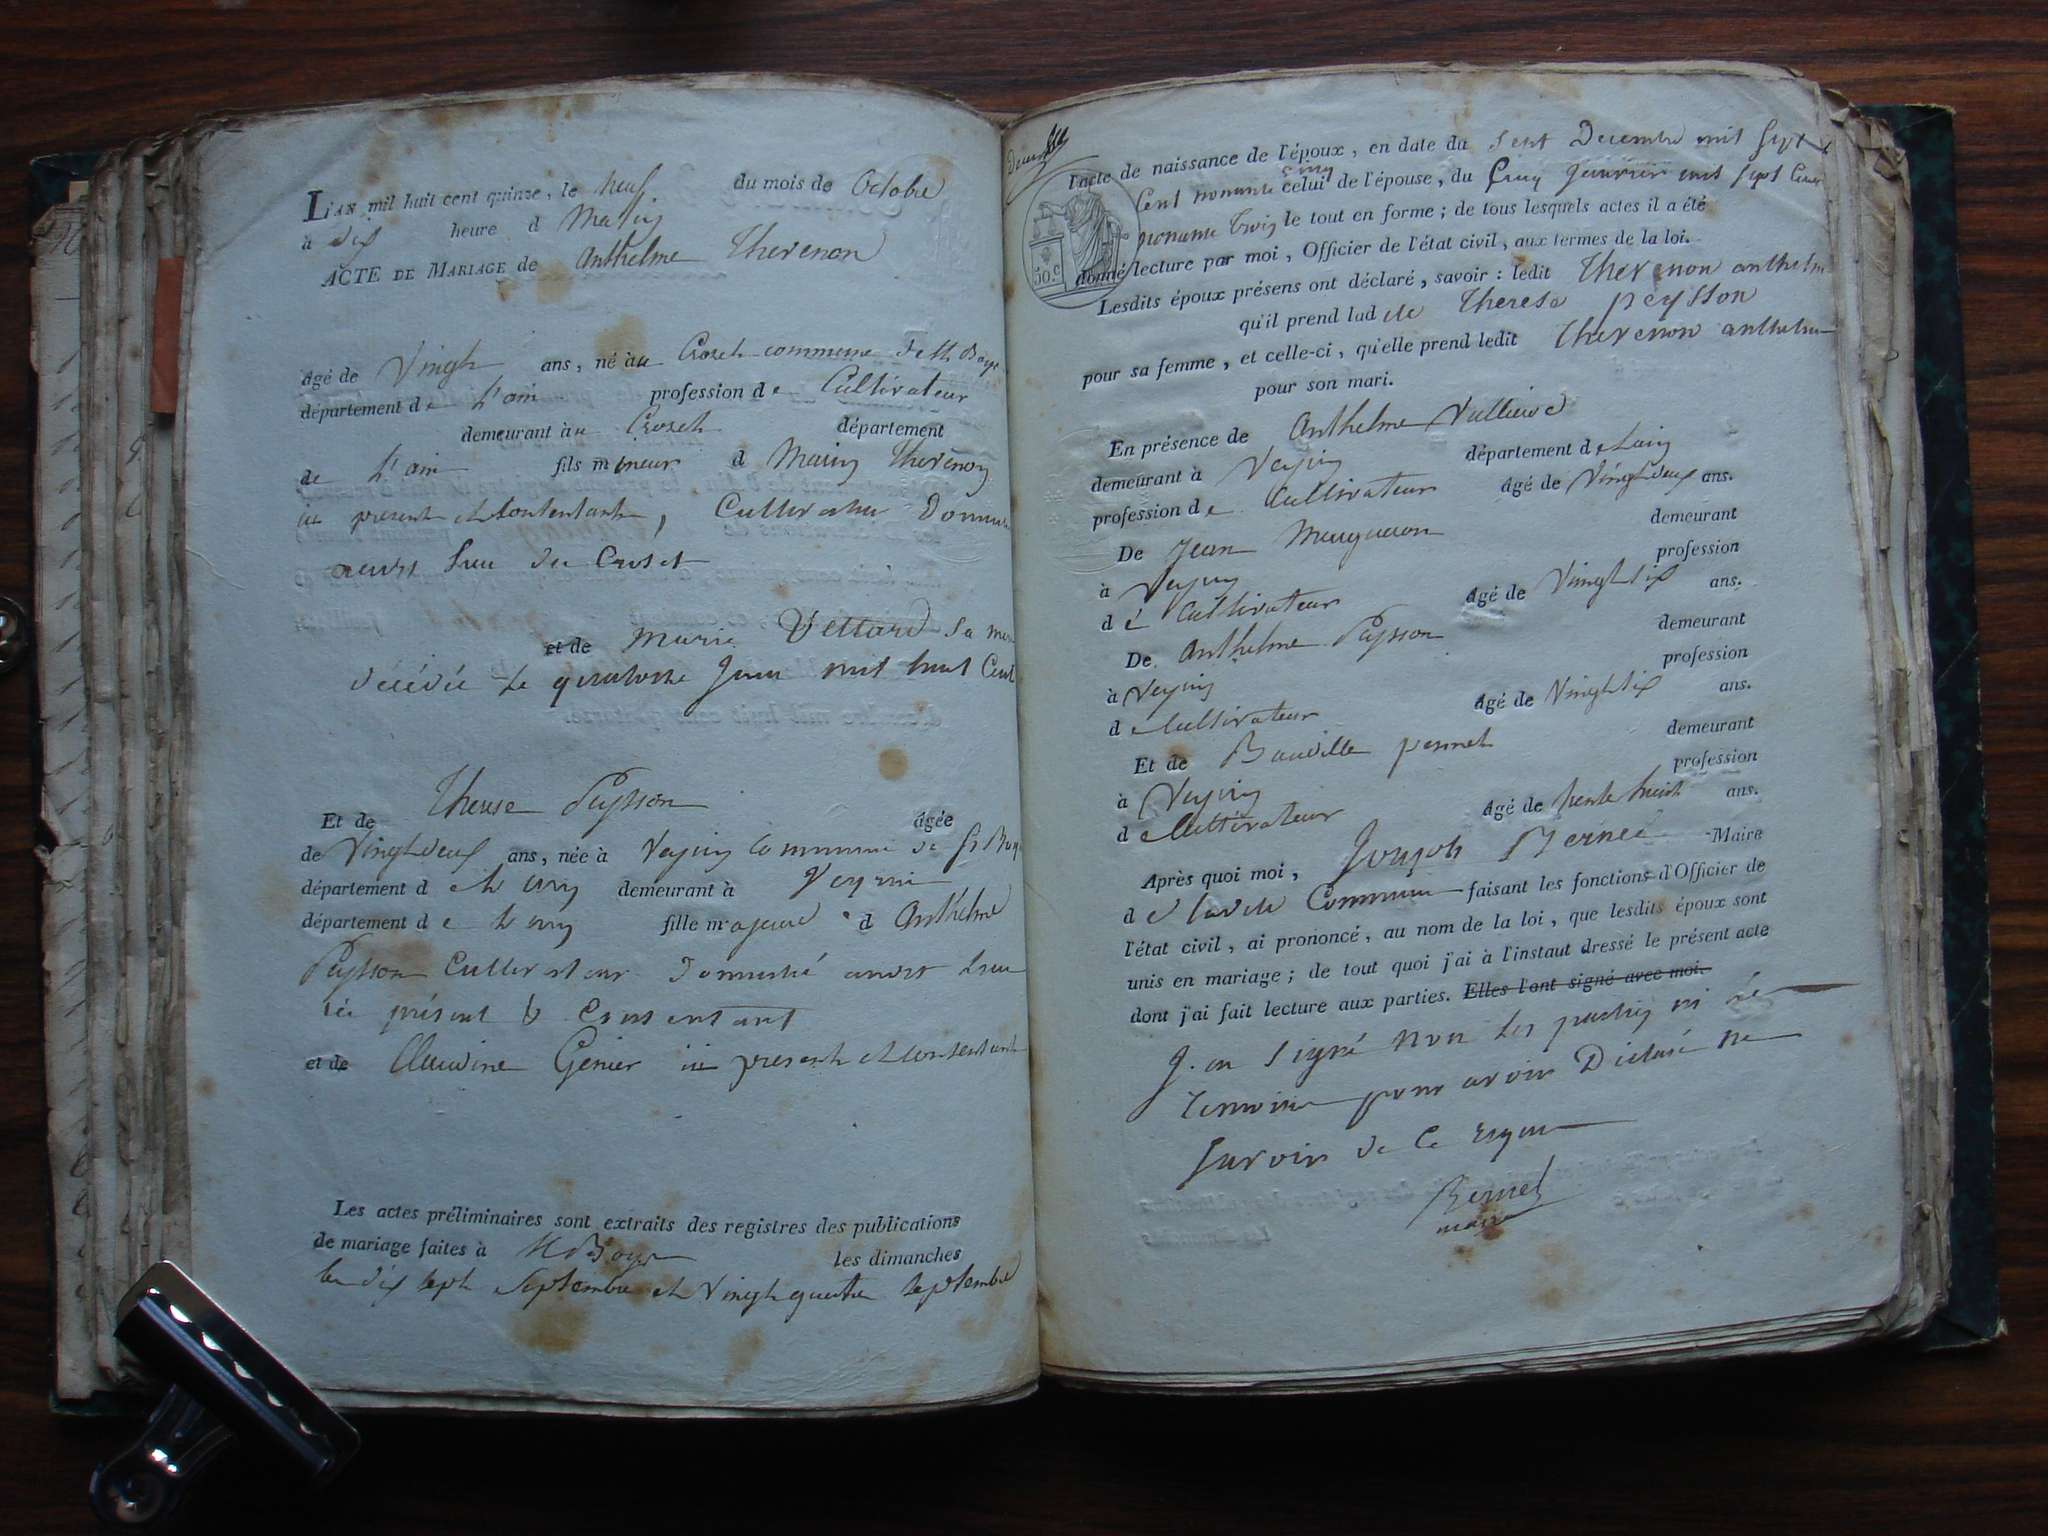 L'AN mil huit cent quinze, le neuf du mois de Octobre
à dix heure d Matin
ACTE DE MARIAGE de Anthelme Thevenon
Agé de Vingt ans, né àu Croset commune de St Boys
département de L'ain profession de Cultivateur
demeurant àu Croset département
de L'ain fils mineur d Thevenon
ici present et Contentant, Cultivateur
audit Lieu du Croset
et de Marie Vettard Sa mere
décédée le quatorze Juin mil huit Cent
Et de Therese Peysson agée
de Vingt deux ans, née à Veyrin Commune de St Boys
département de demeurant à Veyrin
département de fille majeure d Anthelme
Peysson Cultivateur Domicilié audit Lieu
ici présent & Consentant
et de Claudine Genier ici present et consentant
Les actes préliminaires sont extraits des registres des publications
de mariage faites à St Boys les dimanches
le dix sept Septembre et Vingt quatre Septembre
l'acte de naissance de l'époux, en date du Sept Decembre mil Sept
Cent nonante cinq celui de l'épouse, du Cinq Janvier mil Sept Cent
nonante trois le tout en forme; de tous lesquels actes il a été
30.c donné lecture par moi, Officier de l'état civil, aux termes de la loi.
Lesdits époux présens ont déclaré, savoir : ledit Thevenon anthelme
qu'il prend lad ite Therese peysson
pour sa femme, et celle-ci, qu'elle prend ledit Thevenon anthelme
pour son mari.
En présence de Anthelme
demeurant à Veyrin département de Lain
profession de Cultivateur agé de Vingt deux ans.
De Jean demeurant
à Veyrin profession
de Cultivateur agé de Vingt six ans.
De Anthelme Peysson demeurant
à Veyrin profession
de Cultivateur agé de Vingt six ans.
Et de demeurant
à Veyrin profession
de Cultivateur agé de trente huit ans.
Après quoi moi, Joseph Maire
de ladite Commune faisant les fonctions d'Officier de
l'état civil, ai prononcé, au nom de la loi, que lesdits époux sont
unis en mariage; de tout quoi j'ai à l'instant dressé le présent acte
dont j'ai fait lecture aux parties. Elles l'ont signé avec moi.
J. ai Signé non Les parties ni
temoins pour avoir Déclaré ne
Savoir de Ce requis
maire